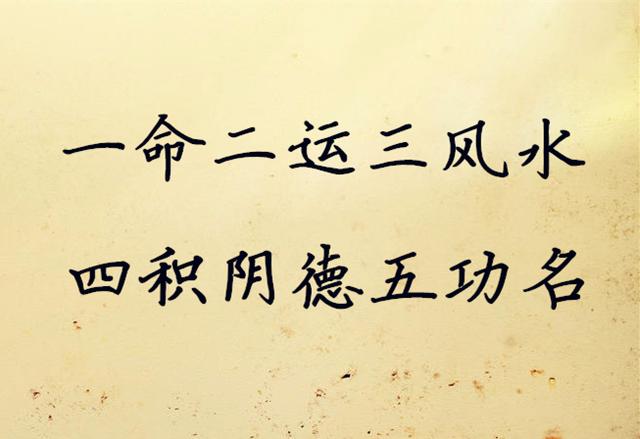 一命二运三风水
四积阴德五功名